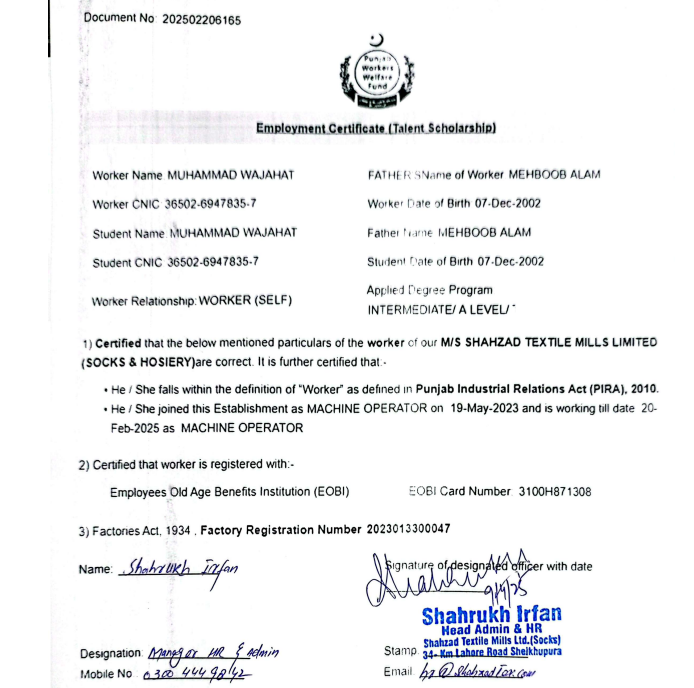 Document No: 202502206165
Punjab
Workers
Welfare
Fund
Employment Certificate (Talent Scholarship)
Worker Name MUHAMMAD WAJAHAT FATHER SName of Worker MEHBOOB ALAM
Worker CNIC 36502-6947835-7 Worker Date of Birth 07-Dec-2002
Student Name: MUHAMMAD WAJAHAT Father Name MEHBOOB ALAM
Student CNIC 36502-6947835-7 Student Date of Birth 07-Dec-2002
Worker Relationship: WORKER (SELF) Applied Degree Program
INTERMEDIATE/ A LEVEL/
1) Certified that the below mentioned particulars of the worker of our M/S SHAHZAD TEXTILE MILLS LIMITED
(SOCKS & HOSIERY)are correct. It is further certified that:-
• He / She falls within the definition of "Worker" as defined in Punjab Industrial Relations Act (PIRA), 2010.
• He / She joined this Establishment as MACHINE OPERATOR on 19-May-2023 and is working till date 20-
Feb-2025 as MACHINE OPERATOR
2) Certified that worker is registered with:-
Employees Old Age Benefits Institution (EOBI) EOBI Card Number: 3100H871308
3) Factories Act, 1934 , Factory Registration Number 2023013300047
Name: Shahrukh Irfan Signature of designated officer with date
Shahrukh Irfan
Head Admin & HR
Shahzad Textile Mills Ltd.(Socks)
Stamp 34- Km Lahore Road Sheikhupura
Designation: HR & Admin
Mobile No
Email